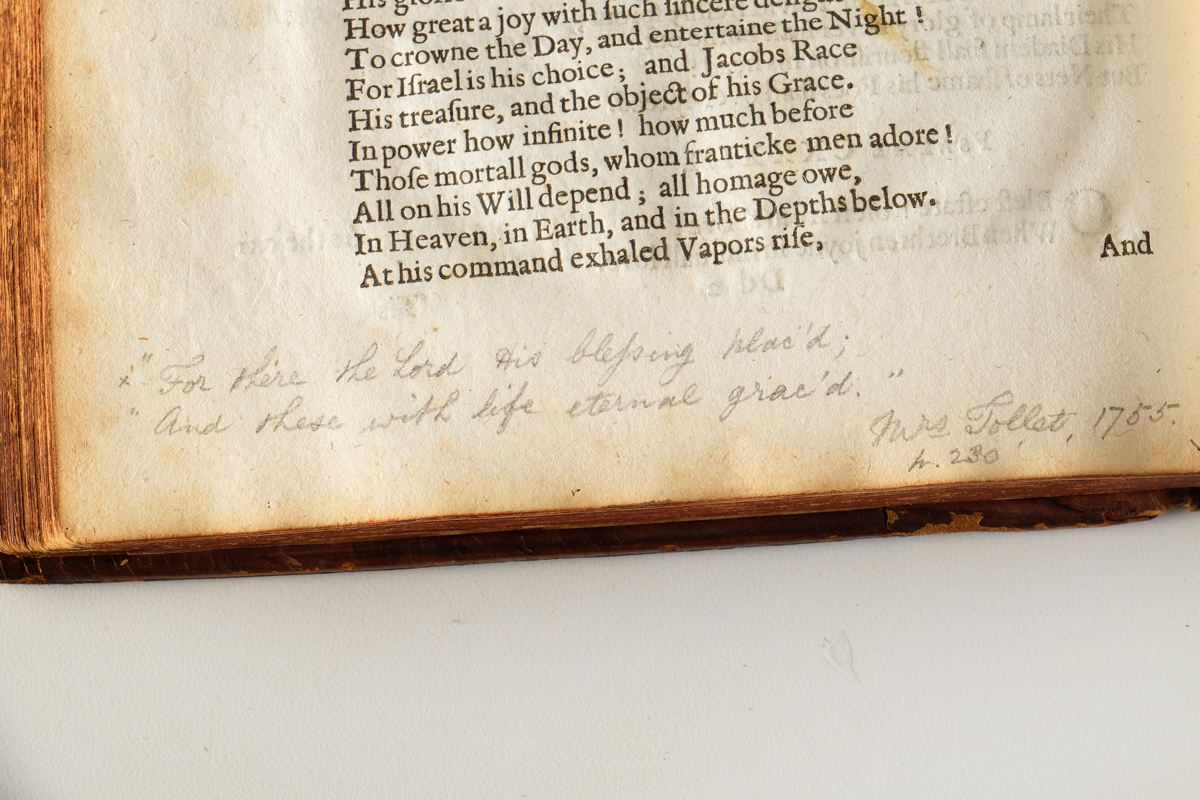 How great a joy with ſuch ſincere delight
To crowne the Day, and entertaine the Night !
For Iſrael is his choice ; and Jacobs Race
His treaſure, and the object of his Grace.
In power how infinite ! how much before
Thoſe mortall gods, whom franticke men adore !
All on his Will depend ; all homage owe,
In Heaven, in Earth, and in the Depths below.
At his command exhaled Vapors riſe,
And
" For there the Lord His bleſsing plac'd ;
x " And these with life eternal grac'd. "
Mrs. Tollet, 1755.
p. 230